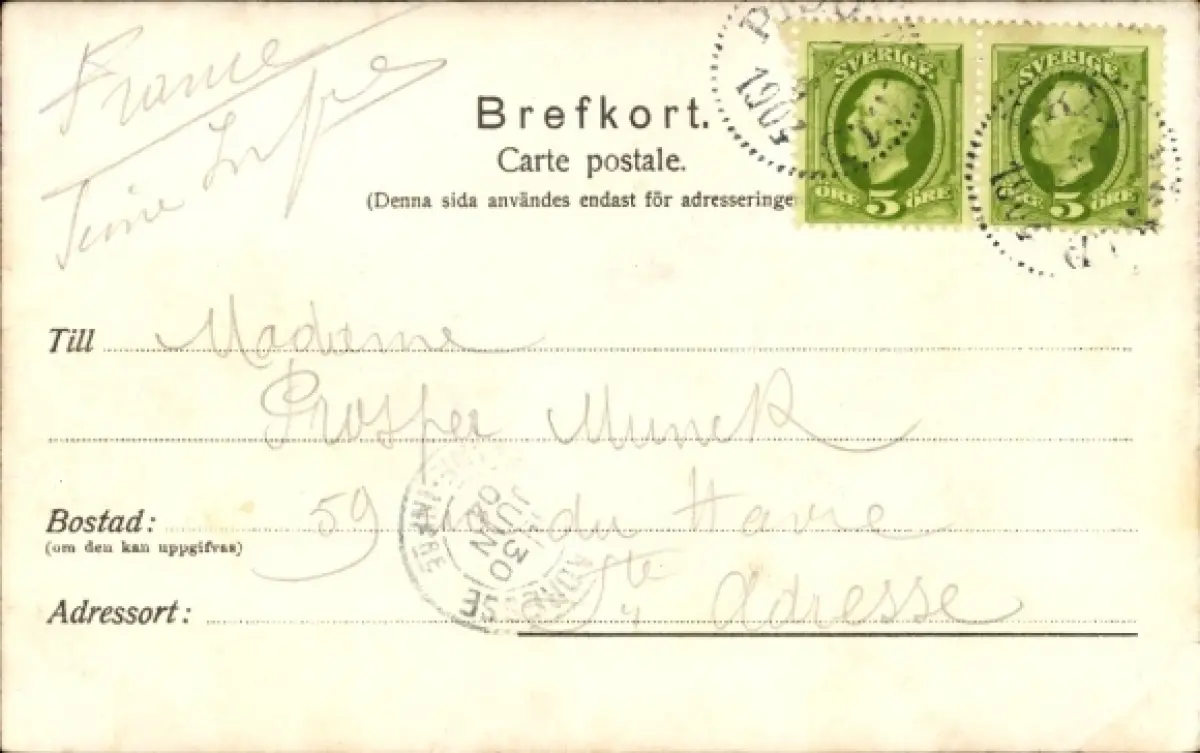 France
Seine Infre
Brefkort.
Carte postale.
(Denna sida användes endast för adresseringe
SVERIGE
ÖRE 5 ÖRE
1903
SVERIGE
ÖRE 5 ÖRE
Till Madame
Prosper Munck
Bostad: 59 rue du Havre
(om den kan uppgifvas)
Adressort: Ste Adresse
30
JUIN